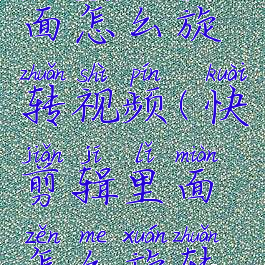 面怎么旋
zhuǎn shì pín kuài
转视频(快
jiǎn jí lǐ miàn
剪辑里面
zěn me xuán zhuǎn
怎么旋转